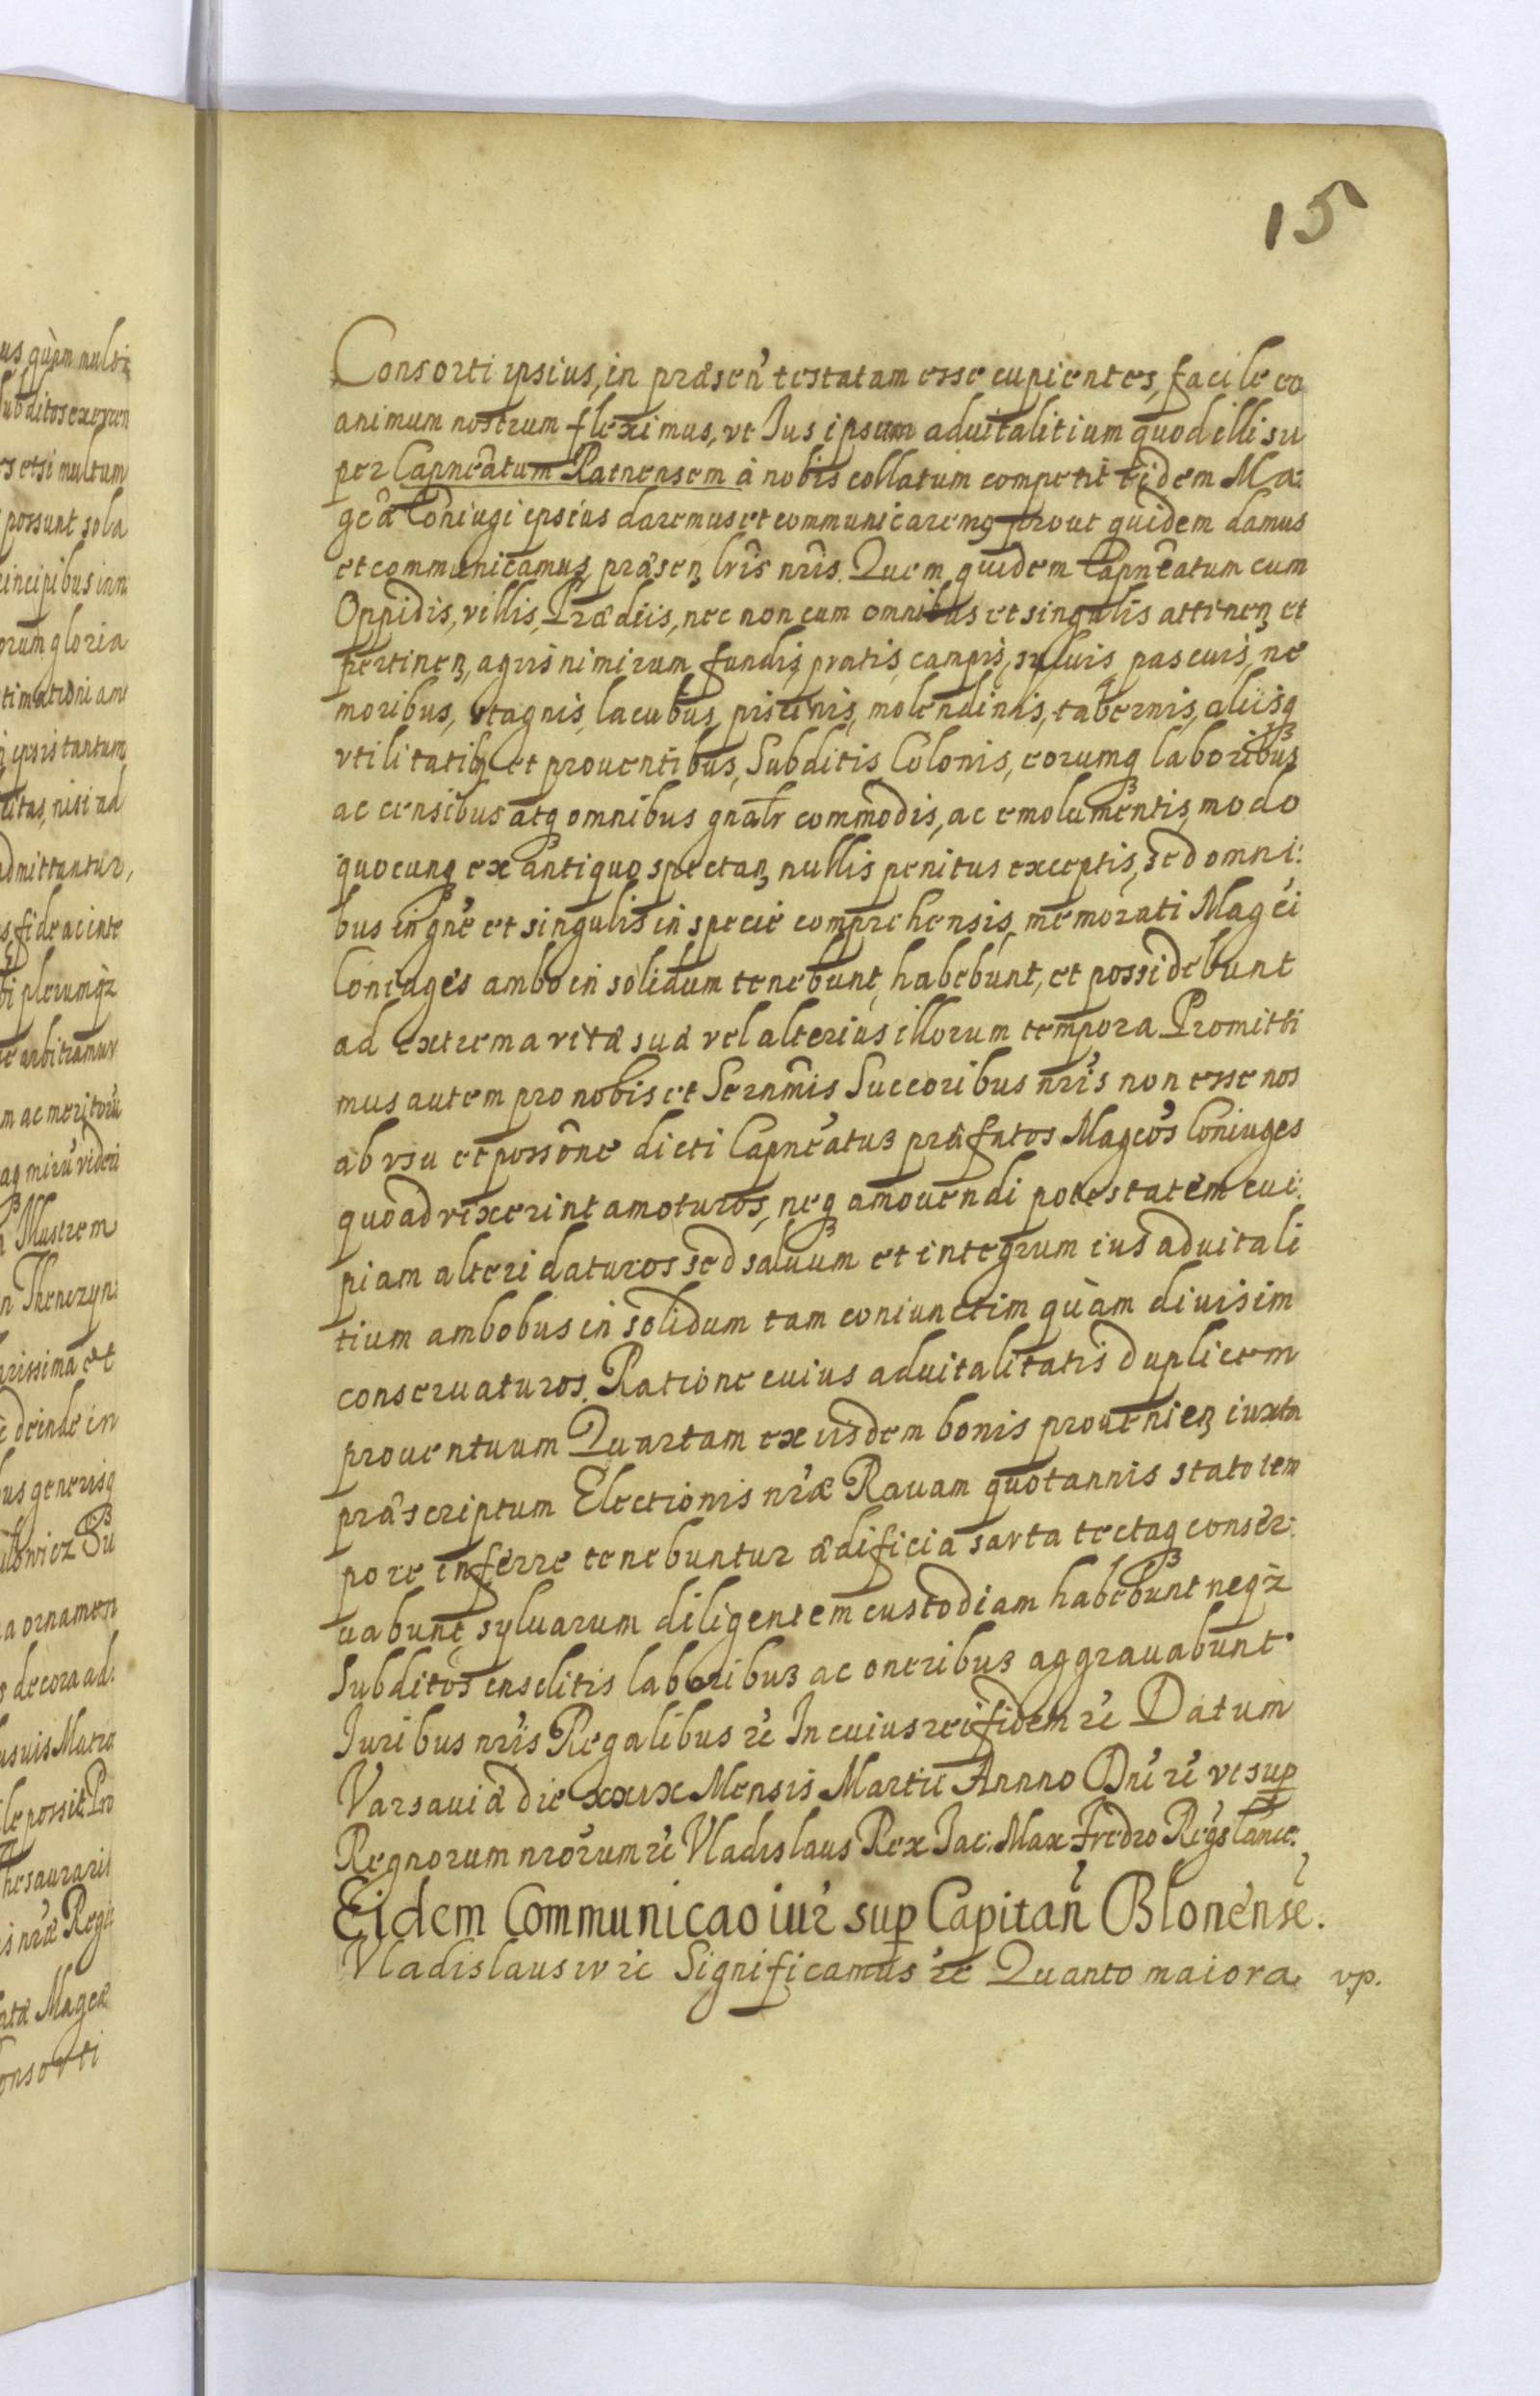 15
Consorti ipsius, in præsen̄ testatam esse cupientes, facile eo
animum nostrum fleximus, vt Ius ipsum aduitalitium quod illi su
per Capneâtum Ratnensem à nobis collatum competit eidem Ma:
gcâ Coniugi ipsius daremus et communicaremq prout quidem damus
et communicamus, præsenȝ lr̂is nr̂is. Quem quidem Capnêatum cum
Oppidis, villis, Prædiis, nec non cum omnibus et singulis attinenȝ et
pertinenȝ, agris nimirum fundis, pratis, campis, syluis, pascuis, ne
moribus, stagnis, lacubus, piscinis, molendinis, tabernis, aliisq
vtilitatibȝ et prouentibus, Subditis, Colonis, eorumq laboribus
ac censibus atq omnibus gnâlr commodis, ac emolumentis, modo
quocunq ex antiquo spectanȝ nullis penitus exceptis, sed omni:
bus in gne et singulis in specie comprehensis, memorati Magci
Coniuges ambo in solidum tenebunt, habebunt, et possidebunt
ad extrema vitæ suæ vel alterius illorum tempora Promitti
mus autem pro nobis et Sernm̂is Succoribus nr̂is non esse nos
ab vsu et possône dicti Capneatus præfatos Magcos Coniuges
quoad vixerint amoturos, neq amouendi potestatem cui:
piam alteri daturos sed saluum et integrum ius aduitali
tium ambobus in solidum tam coniunctim quàm diuisim
conseruaturos. Ratione cuius aduitalitatis duplicem
prouentuum Quartam ex iisdem bonis prouenienȝ iuxta
præscriptum Electionis nr̂æ Rauam quotannis stato tem
pore inferre tenebuntur ædificia sarta tectaq conser:
uabunt, syluarum diligentem custodiam habebunt neqȝ
Subditos insolitis laboribus ac oneribus aggrauabunt.
Iuribus nr̂is Regalibus rc In cuius rei fidem rc Datum
Varsauiæ die xxix Mensis Martii Annno Dni rc vt sup
Regnorum nrorum rc Vladislaus Rex Jac: Max: Fredro Regs Canc:
Eidem Communicao iur sup Capitan Blonense.
Vladislaus IV rc Significamus rc Quanto maiora. vp.